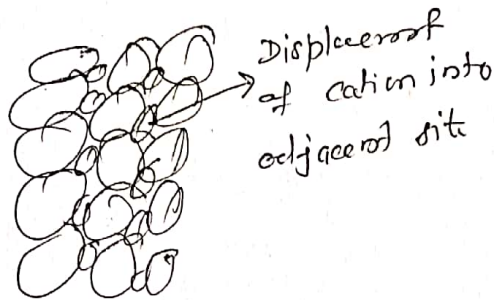 Displacement
of cation into
adjacent site